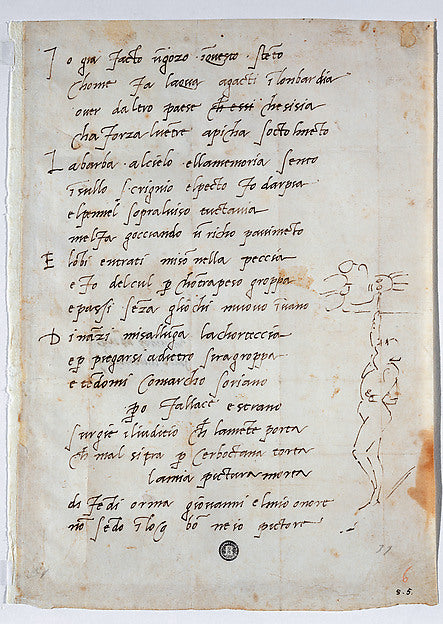 I o gia facto ūgozo īquesto stēto
chome fa laqua agacti ī lonbardia
over daltro paese che essi che sisia
cha forza luētre apicha socto lmēto
L a barba alcielo ellamemoria sento
ī sullo scrignio elpecto fo darpia
elpennel sopraluiso tuctauia
melfa gocciando ū richo pauimēto
E lobi entrati misō nella peccia
e fo delcul p chōtrapeso groppa
e passi sēza gliochi muouo īuano
D ināzi misallūga lachorteccia
e p piegarsi adietro siragroppa
e tēdomi comarcho soriano
po fallace e strano
surgie iliudicio ch lamēte porta
ch mal sitra p cerboctana torta
lamia pictura morta
di fēdi orma giouanni elmio onore
nō sēdo ī log bō ne io pictore
6
8.5.